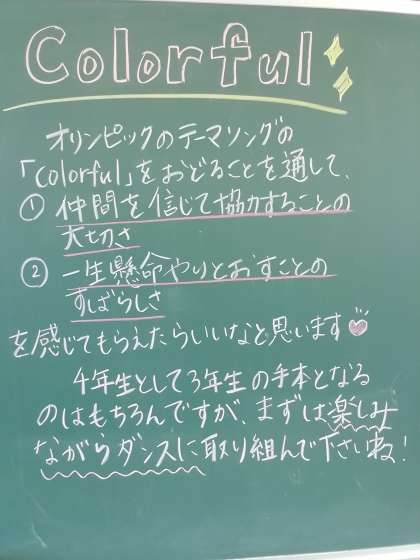 Colorful
オリンピックのテーマソングの
「Colorful」をおどることを通して、
① 仲間を信じて協力することの
大切さ
② 一生懸命やりとおすことの
すばらしさ
を感じてもらえたらいいなと思います
4年生として3年生の手本となる
のはもちろんですが、まずは楽しみ
ながらダンスに取り組んで下さいね!